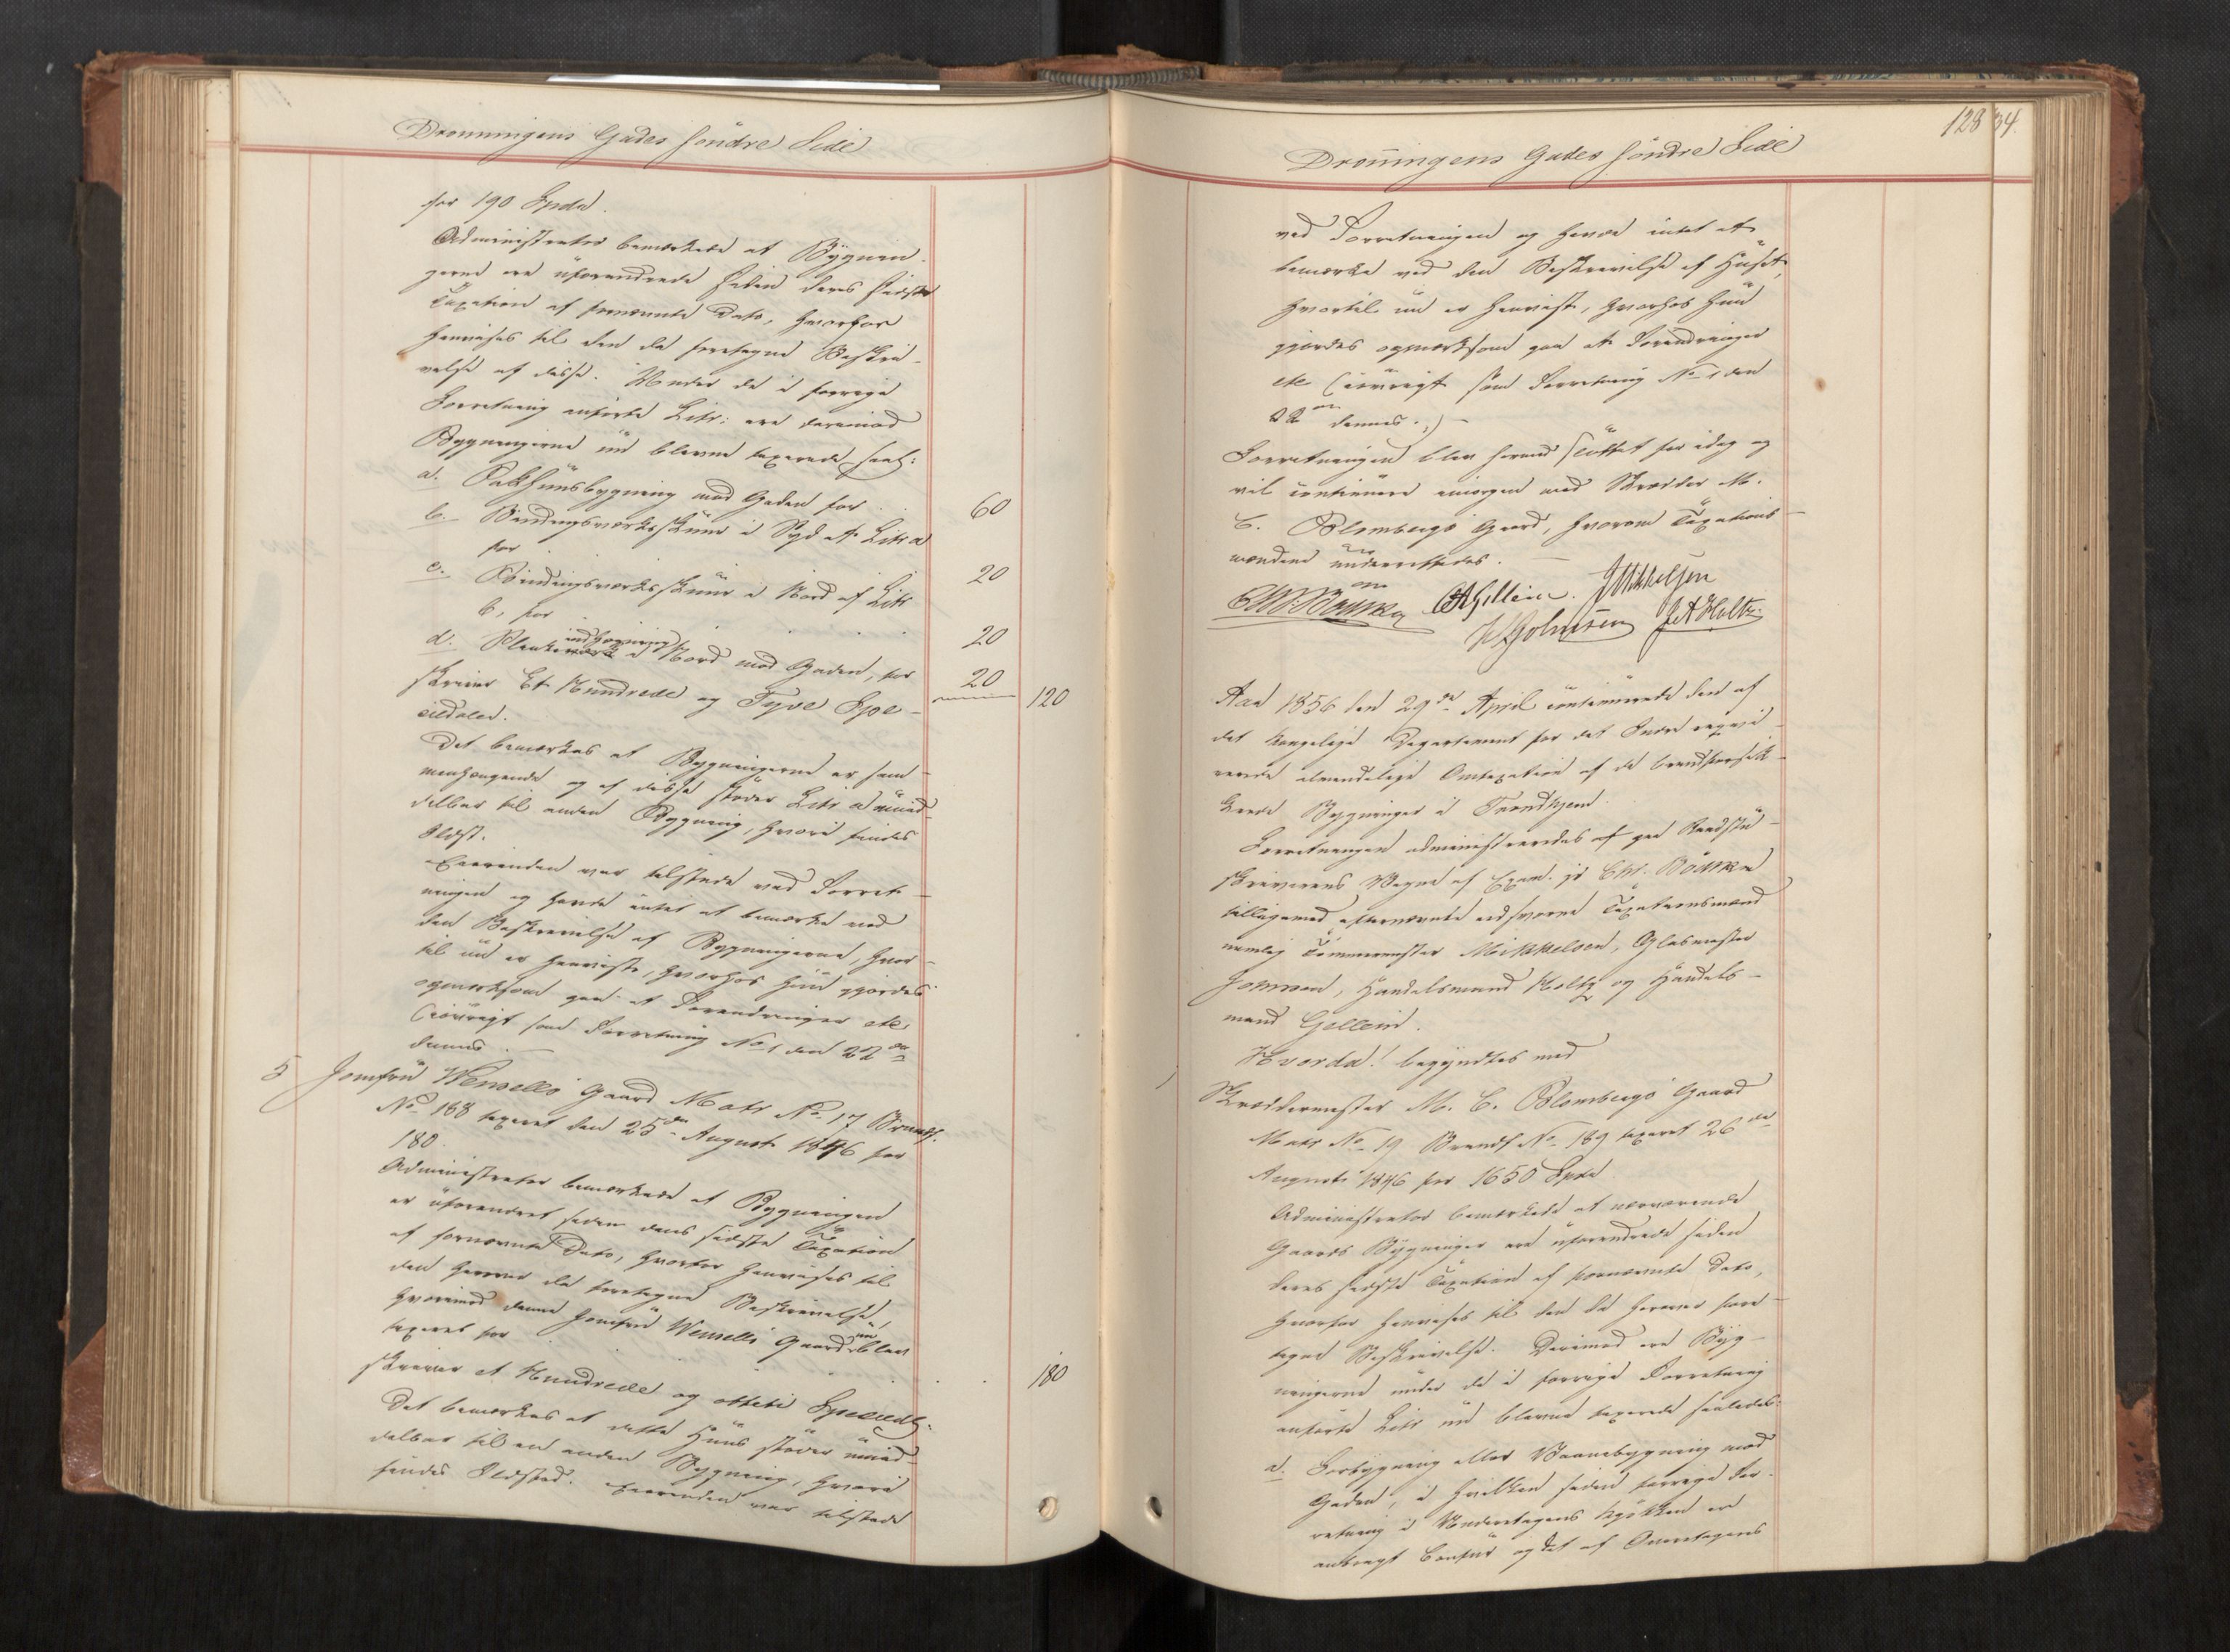 Dronningens Gades söndre Side
for 190 Spdlr.
Administrator bemærkede at Bygnin-
gerne ere uforandrede siden deres sidste
Taxation af fornævnte Dato, hvorfor
henvises til den da foretagne Beskri-
velse af disse. Under de i forrige
Forretning anförte Litr: ere derimod
Bygningerne nu blevne taxerede saal:
a. Bakhuusbygning mod Gaden for 60
b. Bindingsværksskuur i Syd af Litr a
for 20
c. Bindingsværksskuur i Nord af Litr
b, for 20
d. Plankeværk indhegning i Nord mod Gaden, for 20
skriver Et Hundrede og Tyve Spe- 120
ciedaler.
Det bemærkes at Bygningerne er sam-
menhængende og af disse stöder Litr a umid-
delbar til anden Bygning, hvori findes
Ildst.
Eierinden var tilstede ved Forret-
ningen og havde intet at bemærke ved
den Beskrivelse af Bygningerne, hvor-
til nu er henviist, hvorhos hun gjordes
opmærksom paa at Forandringer etc
(iövrigt som Forretning No 1 den 22de
dennes.
5 Jomfru Wensells Gaard Matr No 17 Brands.
No 188 taxeret den 25de August 1846 for
180.
Administrator bemærkede at Bygningen
er uforandret siden dens sidste Taxation
af fornævnte Dato, hvorfor henvises til
den herover da foretagne Beskrivelse,
hvorimod denne Jomfru Wensells Gaard nu blev
taxeret for
skriver et Hundrede og otteti Speciedlr. 180
Det bemærkes at dette Huus stöder umid-
delbar til en anden Bygning, hvori
findes Ildsted. Eierinden var tilstede
128 34.
Dronningens Gades söndre Side
ved Forretningen og havde intet at
bemærke ved den Beskrivelse af Huset,
hvortil nu er henviist, hvorhos hun
gjordes opmærksom paa at Forandringer
etc (iövrigt som Forretning No 1 den
22de dennes.)
Forretningen blev hermed sluttet for idag og
vil continuere imorgen med Skræder M.
C. Blombergs Gaard, hvorom Taxations-
mændene underrettedes.
Chr. Bödtker CA Gellein. J Mikkelsen
H Johnsen J A Holtz
Aar 1856 den 29de April continuerede den af
det kongelige Departement for det Indre reqvi-
rerede almindelige Omtaxation af de brandforsik-
krede Bygninger i Trondhjem
Forretningen administreredes af paa Raadstu-
skriverens Vegne af Exam. jur Chr. Bödtker
tilligemed efternævnte edsvorne Taxationsmænd
nemlig Tömmermester Mikkelsen, Glasmester
Johnsen, Handelsmand Holtz og Handels-
mand Gellein.
Hvorda! begyndtes med
1 Skræddermester M. C. Blombergs Gaard
Matr No 19 Brands No 189 taxeret 26de
August 1846 for 1650 Spd
Administrator bemærkede at nærværende
Gaards Bygninger ere uforandrede siden
deres sidste Taxation af fornævnte Dato,
hvorfor henvises til den da herover fore-
tagne Beskrivelse. Derimod ere Byg-
ningerne under de i forrige Forretning
anförte Litr nu blevne taxerede saaledes:
a. Forbygning eller Vaanebygning mod
Gaden, i hvilken siden forrige For-
retning i Underetagens Kjökken er
anbragt Comfur og det af Overetagens